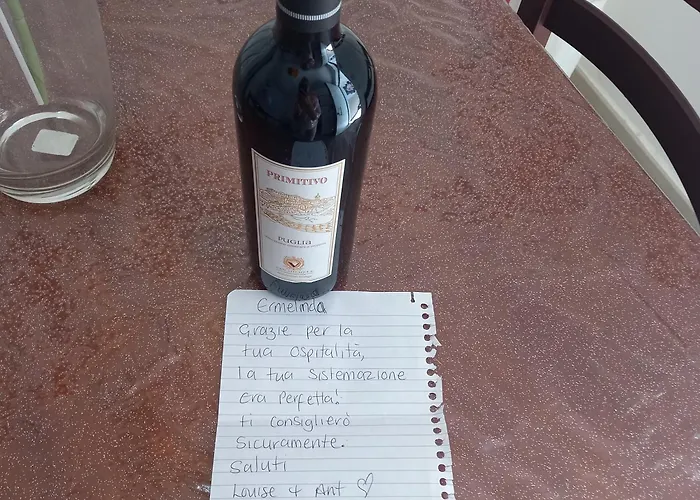 PRIMITIVO
PUGLIA
Ermelinda
Grazie per la
tua ospitalità,
la tua sistemazione
era perfetta!
ti consiglierò
sicuramente.
Saluti
Louise + Ant ♡